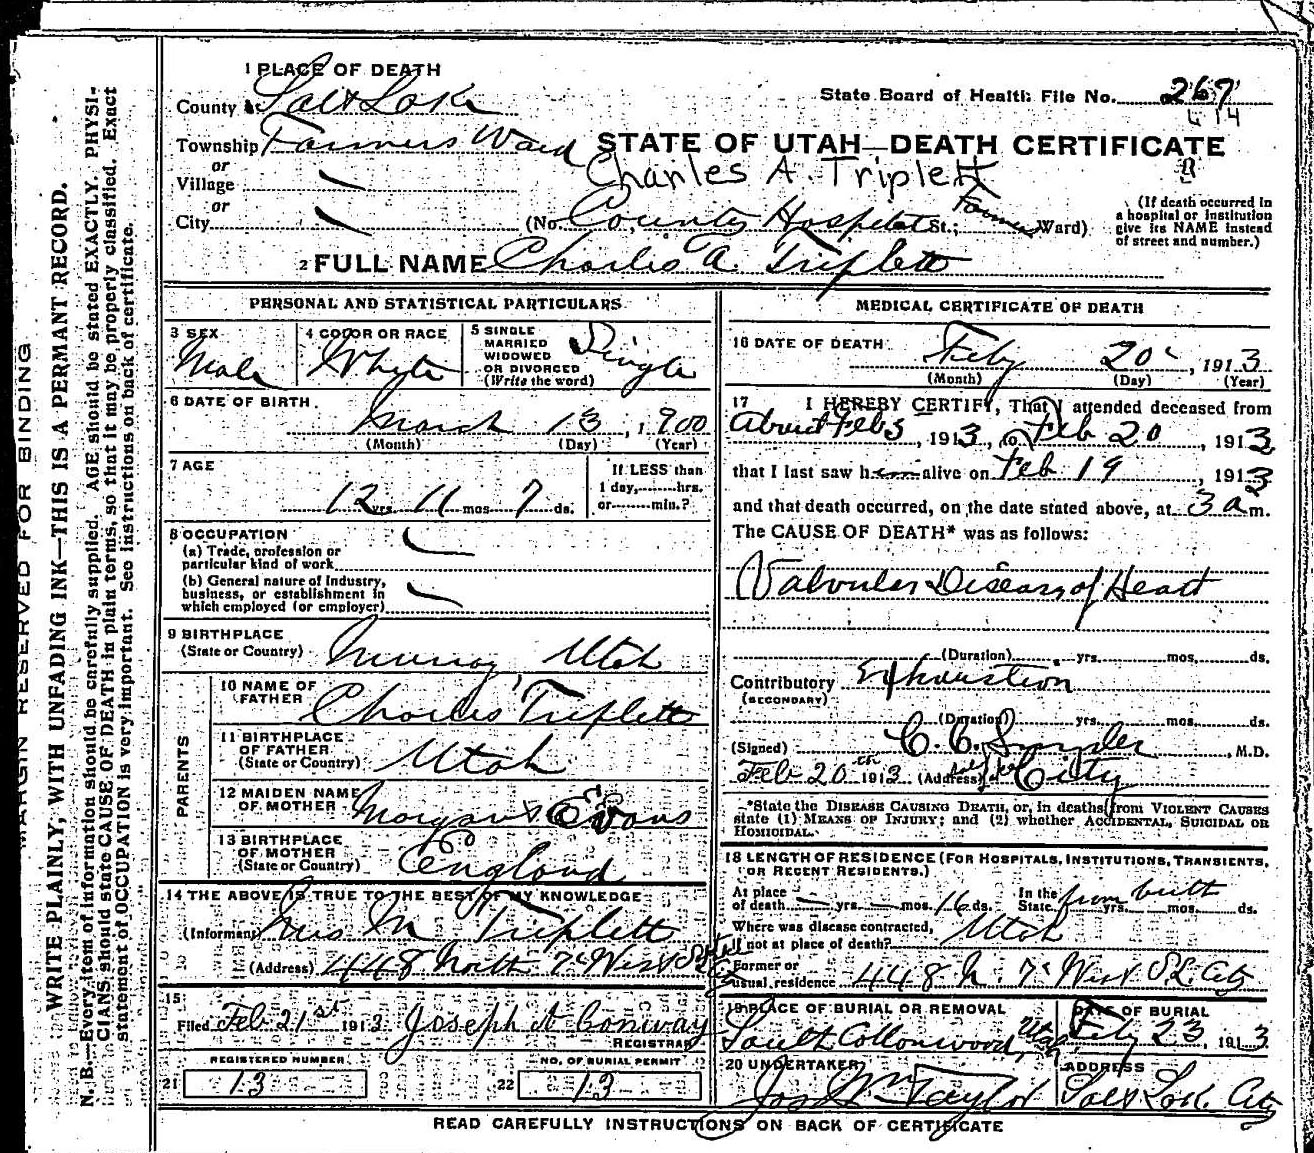 1 PLACE OF DEATH
County Salt Lake
State Board of Health File No. 267
14
Township Farmers Ward
STATE OF UTAH—DEATH CERTIFICATE
Charles A. Triplett
or
Village
or
City (No. County Hospital St.; Farmers Ward)
(If death occurred in a hospital or institution give its NAME instead of street and number.)
2 FULL NAME Charles A. Triplett
PERSONAL AND STATISTICAL PARTICULARS
3 SEX Male
4 COLOR OR RACE White
5 SINGLE MARRIED WIDOWED OR DIVORCED (Write the word) Single
6 DATE OF BIRTH
March 13, 1900
(Month) (Day) (Year)
7 AGE
12 yrs 11 mos 7 ds.
If LESS than 1 day, hrs. or min.?
8 OCCUPATION
(a) Trade, profession or particular kind of work
(b) General nature of Industry, business, or establishment in which employed (or employer)
9 BIRTHPLACE (State or Country) Murray, Utah
PARENTS
10 NAME OF FATHER Charles Triplett
11 BIRTHPLACE OF FATHER (State or Country) Utah
12 MAIDEN NAME OF MOTHER Evans
13 BIRTHPLACE OF MOTHER (State or Country) England
14 THE ABOVE IS TRUE TO THE BEST OF MY KNOWLEDGE
(Informant) Mrs M Triplett
(Address) 448 North 7th West
15 Filed Feb 21st 1913 Joseph A Conway
REGISTRAR
REGISTERED NUMBER
21 13
NO. OF BURIAL PERMIT
22 13
MEDICAL CERTIFICATE OF DEATH
16 DATE OF DEATH Feby 20, 1913
(Month) (Day) (Year)
17 I HEREBY CERTIFY, That I attended deceased from
About Feb 3, 1913, to Feb 20, 1913
that I last saw him alive on Feb 19, 1913
and that death occurred, on the date stated above, at 3 a m.
The CAUSE OF DEATH* was as follows:
Valvular Disease of Heart
(Duration) yrs. mos. ds.
Contributory Exhaustion
(SECONDARY)
(Duration) yrs. mos. ds.
(Signed) C. C. Snyder, M.D.
Feb 20th 1913 (Address) City
*State the DISEASE CAUSING DEATH, or, in deaths from VIOLENT CAUSES
state (1) MEANS OF INJURY; and (2) whether ACCIDENTAL, SUICIDAL OR
HOMICIDAL.
18 LENGTH OF RESIDENCE (FOR HOSPITALS, INSTITUTIONS, TRANSIENTS,
OR RECENT RESIDENTS.)
At place of death yrs. mos. 16 ds. In the State from birth yrs. mos. ds.
Where was disease contracted, if not at place of death? Utah
Former or usual residence 448 N. 7 West SL City
19 PLACE OF BURIAL OR REMOVAL South Cottonwood, Utah
DATE OF BURIAL Feby 23, 1913
20 UNDERTAKER Jos Wm Taylor
ADDRESS Salt Lake City
READ CAREFULLY INSTRUCTIONS ON BACK OF CERTIFICATE
MARGIN RESERVED FOR BINDING
WRITE PLAINLY, WITH UNFADING INK—THIS IS A PERMANT RECORD.
N. B.—Every item of information should be carefully supplied. AGE should be stated EXACTLY. PHYSI-
CIANS should state CAUSE OF DEATH in plain terms, so that it may be properly classified. Exact
statement of OCCUPATION is very important. See instructions on back of certificate.